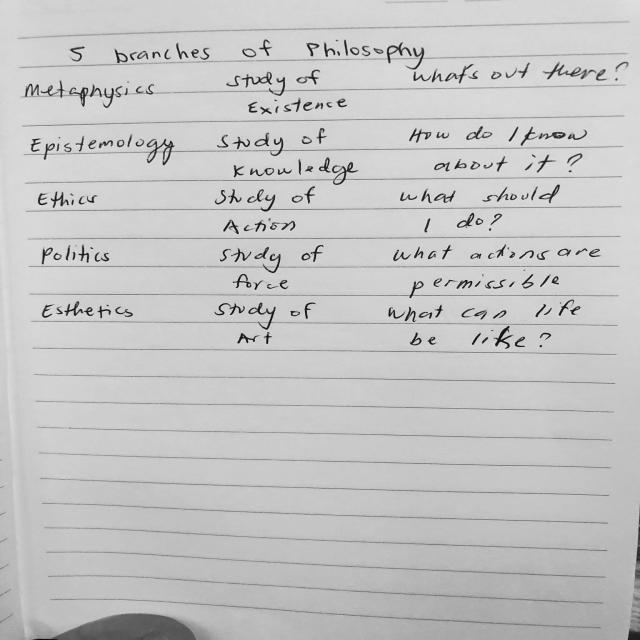 5 branches of Philosophy
Metaphysics study of what's out there?
Existence
Epistemology Study of How do I know
Knowledge about it?
Ethics Study of what should
Action I do?
Politics study of what actions are
force permissible
Esthetics Study of what can life
Art be like?